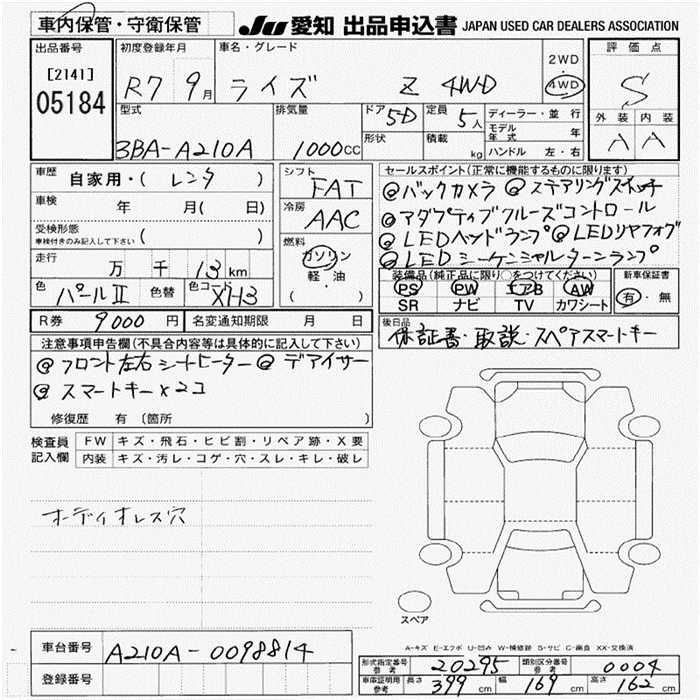 車内保管・守衛保管
JU 愛知 出品申込書 JAPAN USED CAR DEALERS ASSOCIATION
出品番号
[2141]
05184
初度登録年月
R7 9月
車名・グレード
ライズ Z 4WD
2WD
・
4WD
評価点
S
外装 内装
A A
型式
3BA-A210A
排気量
1000cc
ドア 5D
形状
定員 5人
積載 kg
ディーラー・並行
モデル年式 年
ハンドル 左・右
車歴 自家用・( レンタ )
車検 年 月( 日)
受検形態
車検付きのみ記入して下さい ( )
走行 万 千 13 km
色 パールII 色替 色コード XH3
シフト
FAT
冷房
AAC
燃料
ガソリン
軽・油
( )
セールスポイント(正常に機能するものに限ります)
@バックカメラ @ステアリングスイッチ
@アダプティブクルーズコントロール
@LEDヘッドランプ@LEDリヤフォグ
@LEDシーケンシャルターンランプ
装備品(純正品に限り○をつけてください)
PS PW エアB AW
SR ナビ TV カワシート
新車保証書
有・無
R券 9000円 名変通知期限 月 日
後日品
保証書・取説・スペアスマートキー
注意事項申告欄(不具合内容等は具体的に記入して下さい)
@フロント左右シートヒーター@デアイサー
@スマートキー×2コ
修復歴 有 〔箇所
検査員記入欄
FW キズ・飛石・ヒビ割・リペア跡・X要
内装 キズ・汚レ・コゲ・穴・スレ・キレ・破レ
オーディオレス穴
スペア
A-キズ E-エクボ U-凹み W-補修跡 S-サビ C-腐食 XX-交換済
車台番号 A210A-0098814
登録番号
形式指定番号 参考 20295 類別区分番号 参考 0004
車庫証明用 参考 長さ 399 cm 幅 169 cm 高さ 162 cm